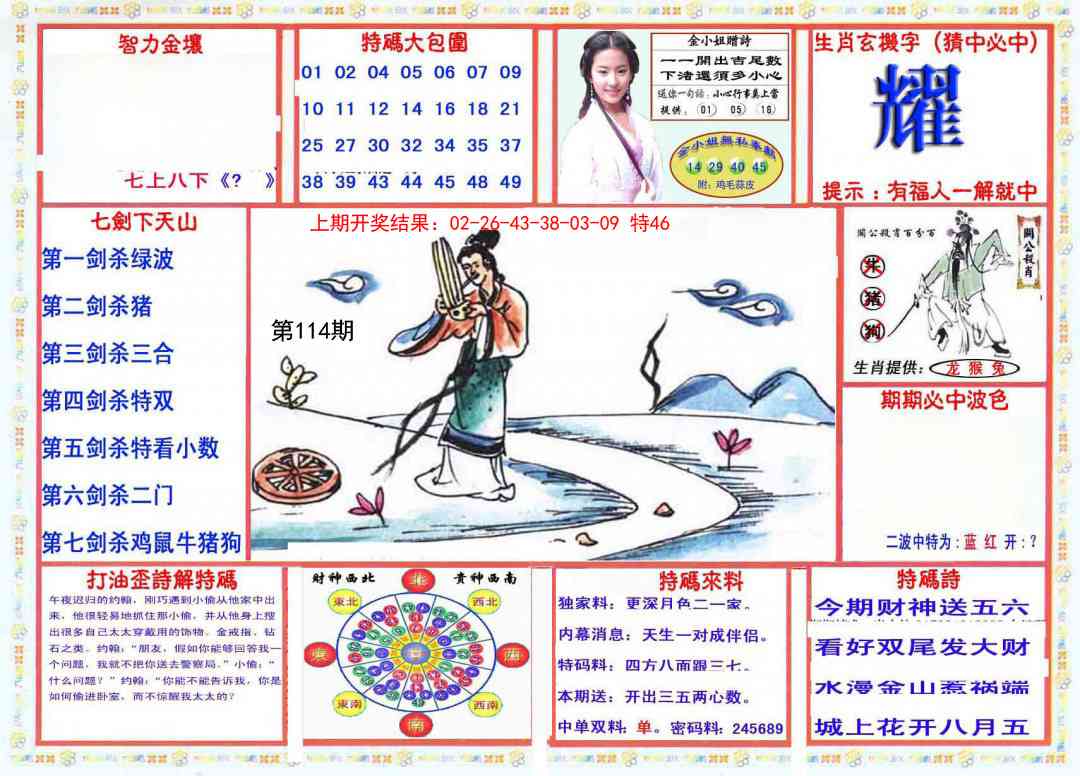 智力金壤
七上八下《? 》
特碼大包圍
01 02 04 05 06 07 09
10 11 12 14 16 18 21
25 27 30 32 34 35 37
38 39 43 44 45 48 49
金小姐贈詩
一一開出吉尾數
下渚還須多小心
送你一句话：小心行事莫上當
提供：(01) (05) (16)
金小姐無私奉献
14 29 40 45
附：鸡毛蒜皮
生肖玄機字（猜中必中）
耀
提示：有福人一解就中
七劍下天山
第一剑杀绿波
第二剑杀猪
第三剑杀三合
第四剑杀特双
第五剑杀特看小数
第六剑杀二门
第七剑杀鸡鼠牛猪狗
上期开奖结果：02-26-43-38-03-09 特46
第114期
關公殺肖百分百
關公殺肖
牛
猪
狗
生肖提供：龙 猴 兔
期期必中波色
二波中特为：蓝 红 开：?
打油歪詩解特碼
午夜迟归的约翰，刚巧遇到小偷从他家中出
来，他很轻易地抓住那小偷，并从他身上搜
出很多自己太太穿戴用的饰物、金戒指、钻
石之类。约翰：“朋友，假如你能够回答我一
个问题，我就不把你送去警察局。”小偷：“
什么问题？” 约翰：“你能不能告诉我，你是
如何偷进卧室，而不惊醒我太太的？
財神西北 貴神西南
北
東北 西北
東 西
東南 西南
南
特碼來料
独家料：更深月色二一家。
内幕消息：天生一对成伴侣。
特码料：四方八面跟三七。
本期送：开出三五两心数。
中单双料：单。密码料：245689
特碼詩
今期财神送五六
看好双尾发大财
水漫金山惹祸端
城上花开八月五